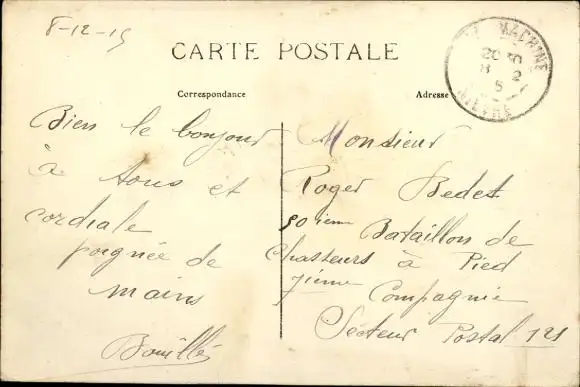 8-12-15
CARTE POSTALE
Correspondance
Adresse
LA MACHINE
20 30
8 2
5
NIEVRE
Bien le bonjour
à tous et
cordiale
poignée de
mains
Bouillé
Monsieur
Roger Bedest
50ieme Bataillon de
Chasseurs à Pied
7ieme Compagnie
Secteur Postal 121